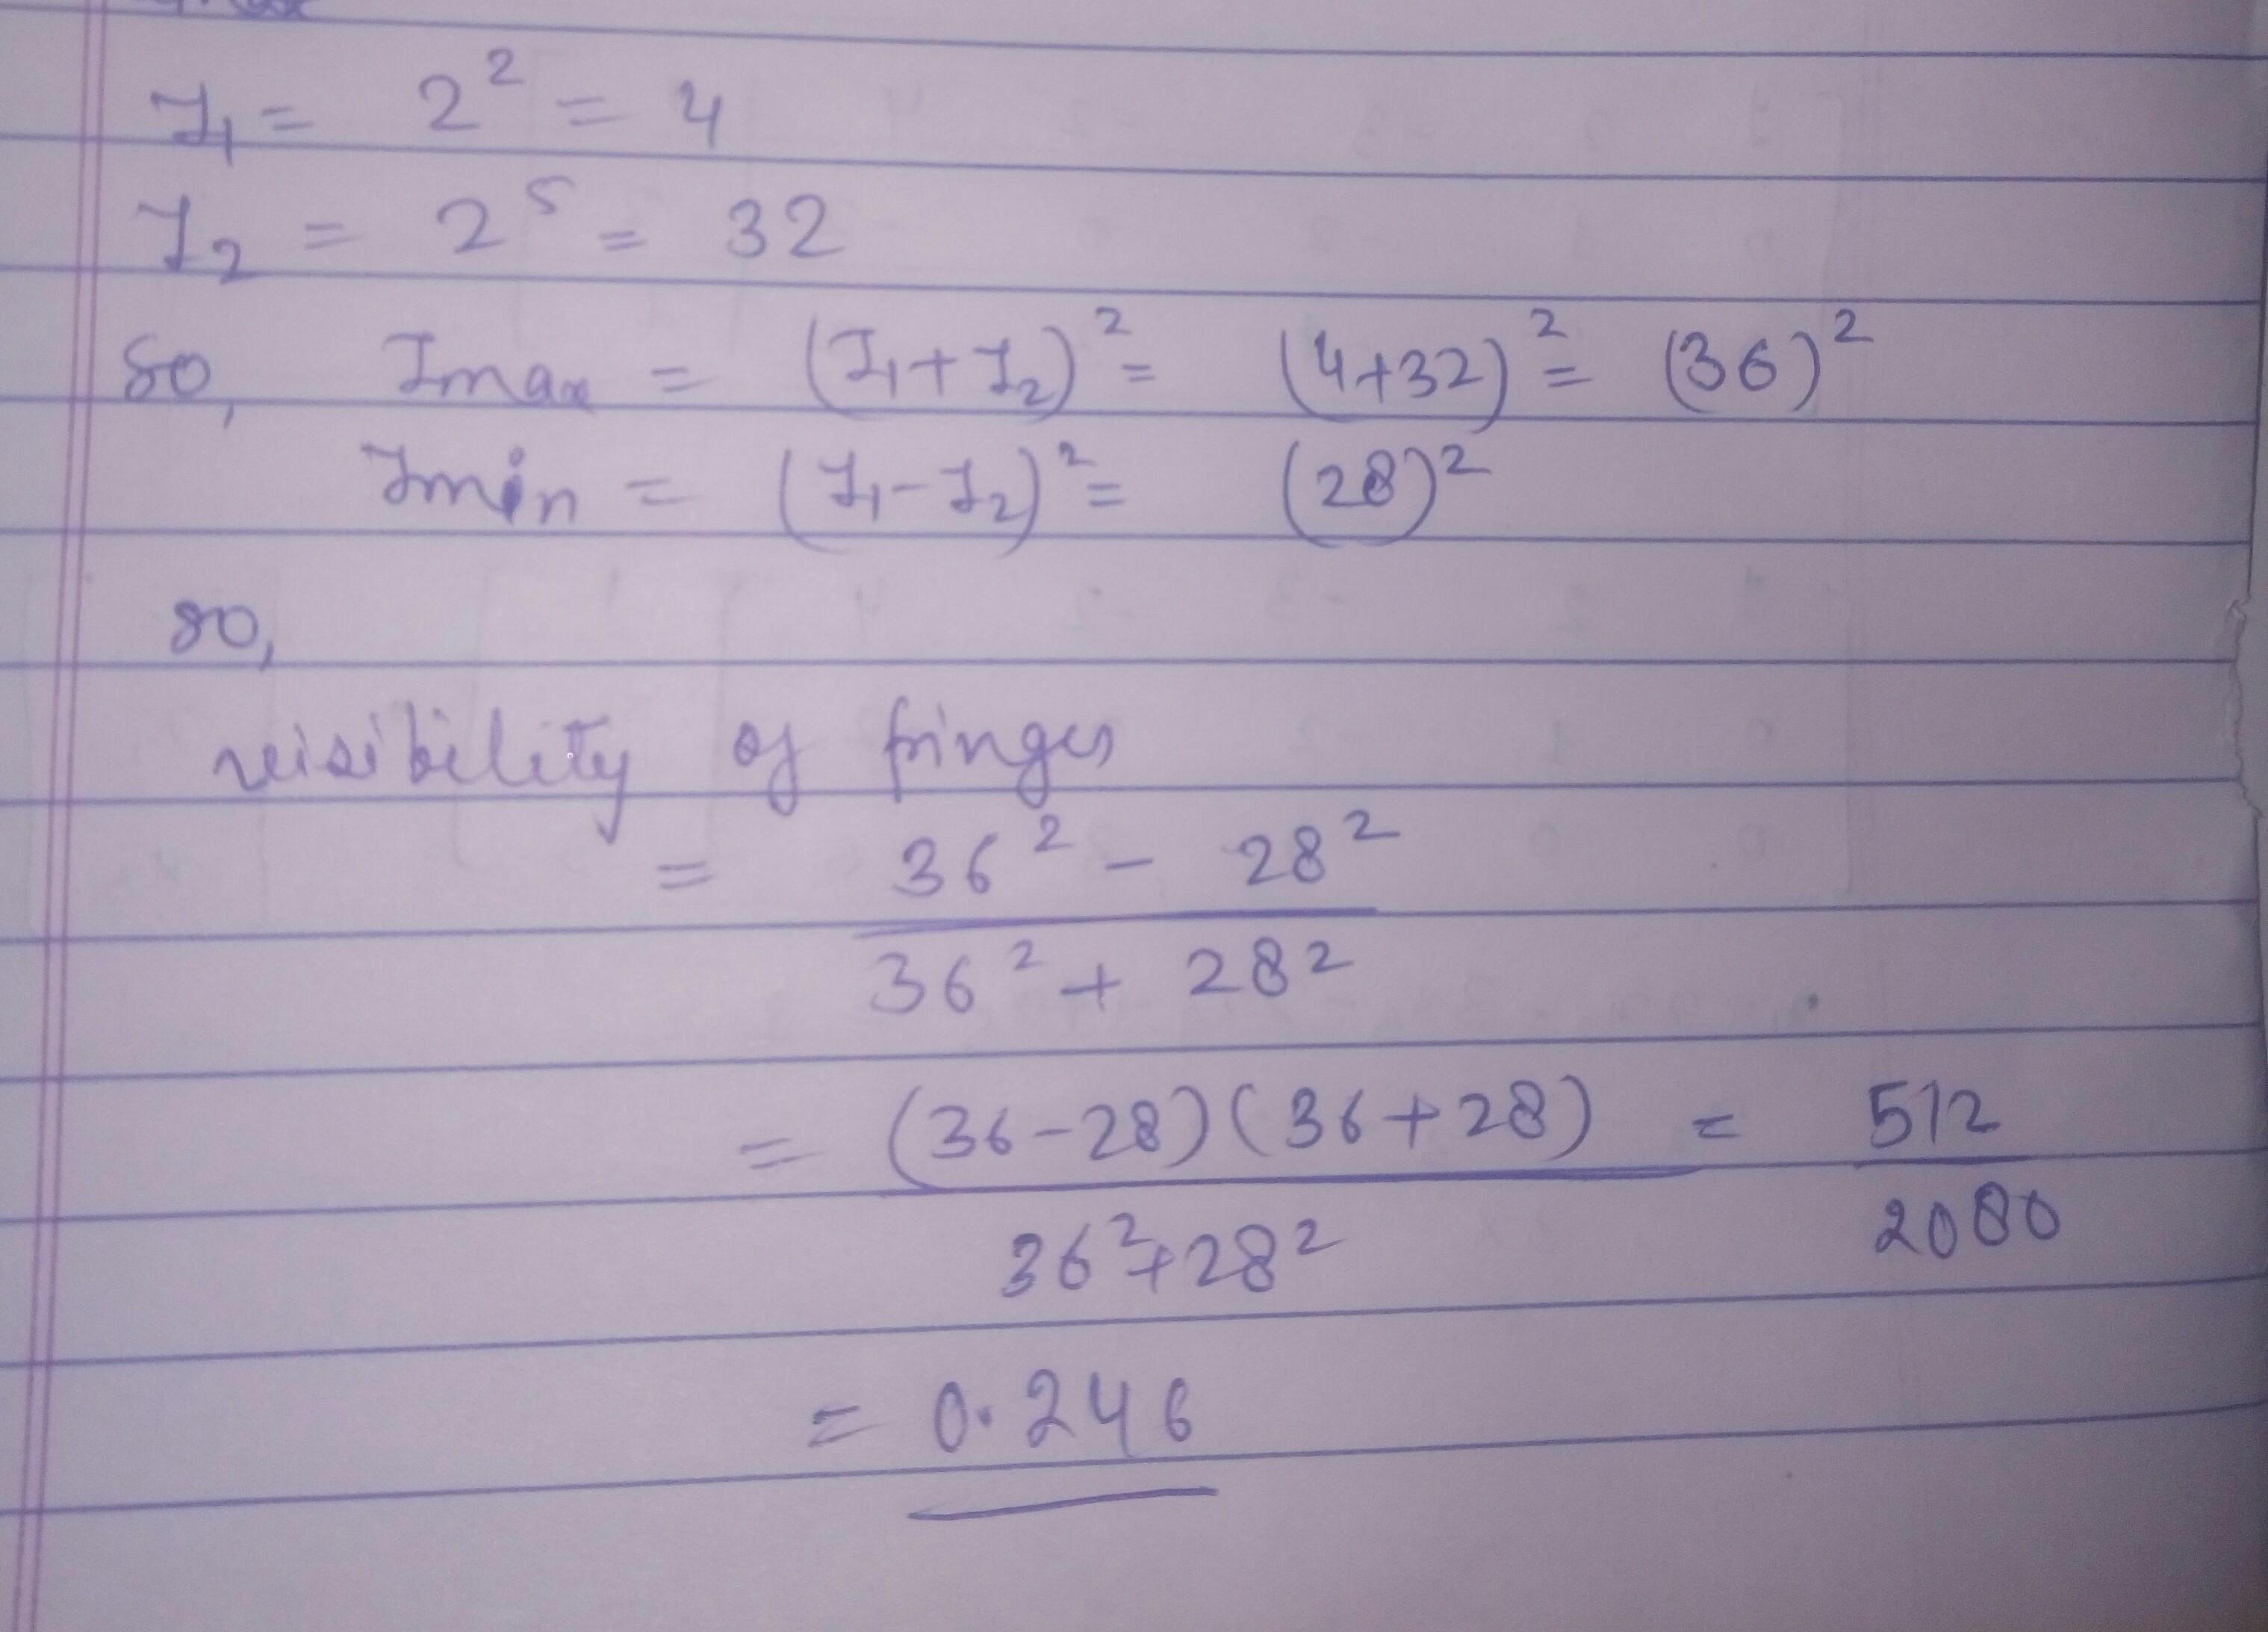 I₁ = 2² = 4
I₂ = 2⁵ = 32
So, Imax = (I₁+I₂)² = (4+32)² = (36)²
Imin = (I₁-I₂)² = (28)²
so,
visibility of fringes
= 36² - 28²
36² + 28²
= (36-28)(36+28) = 512
36²+28² 2080
= 0.246